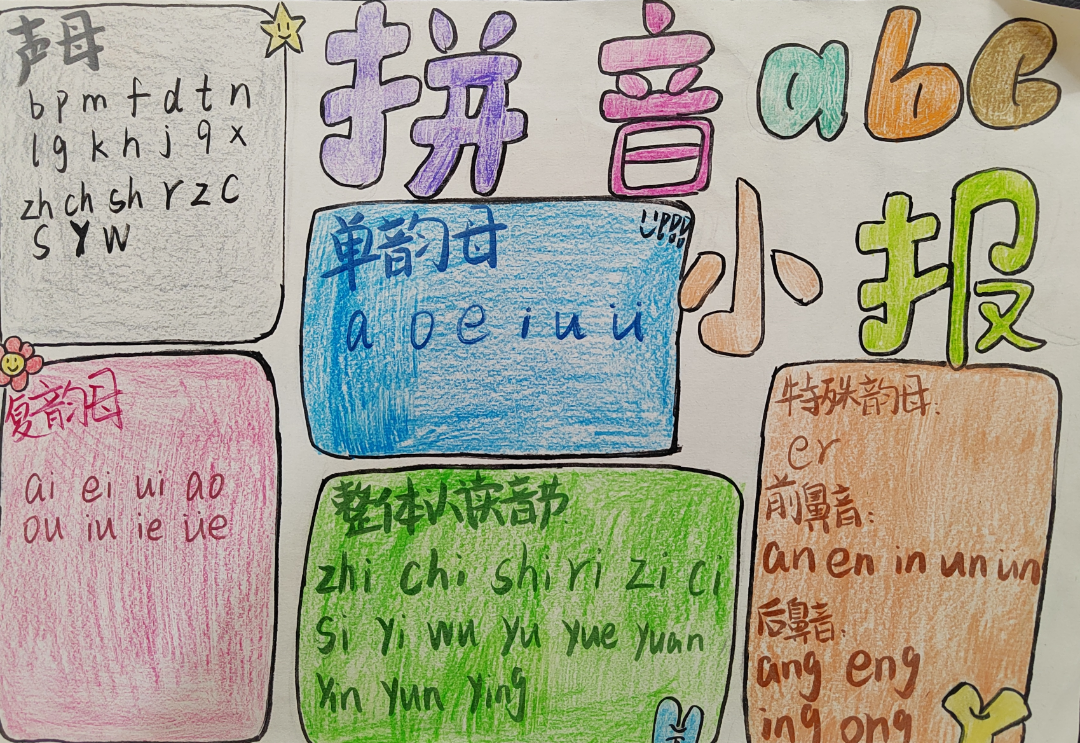 声母
b p m f d t n
l g k h j q x
zh ch sh r z c
s y w
拼音 abc
小报
单韵母
a o e i u ü
复韵母
ai ei ui ao
ou iu ie üe
整体认读音节
zhi chi shi ri zi ci
si yi wu yu yue yuan
yin yun ying
特殊韵母:
er
前鼻音:
an en in un ün
后鼻音:
ang eng
ing ong